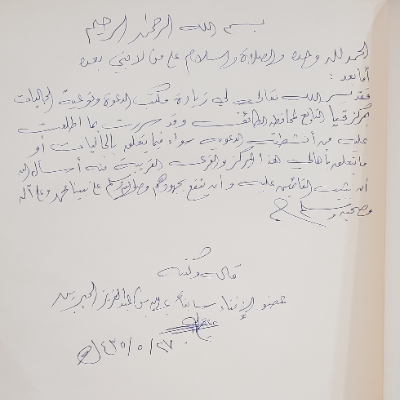 بسم الله الرحمن الرحيم
الحمد لله وحده والصلاة والسلام على من لا نبي بعده
أما بعد :
فقد يسر الله تعالى لي زيارة مكتب الدعوة وتوعية الجاليات
بمركز قيا التابع لمحافظة الطائف وقد سررت بما اطلعت
عليه من أنشطته الدعوية سواء فيما يتعلق بالجاليات أو
ما يتعلق بأهالي هذا المركز والقرى القريبة منه أسأل الله
أن يثيب القائمين عليه وأن ينفع بجهودهم وصلى الله وسلم على نبينا محمد وعلى آله
وصحبه وسلم
قاله وكتبه
عضو الإفتاء بن عبدالعزيز
١٤٣٥/٥/٢٧هـ